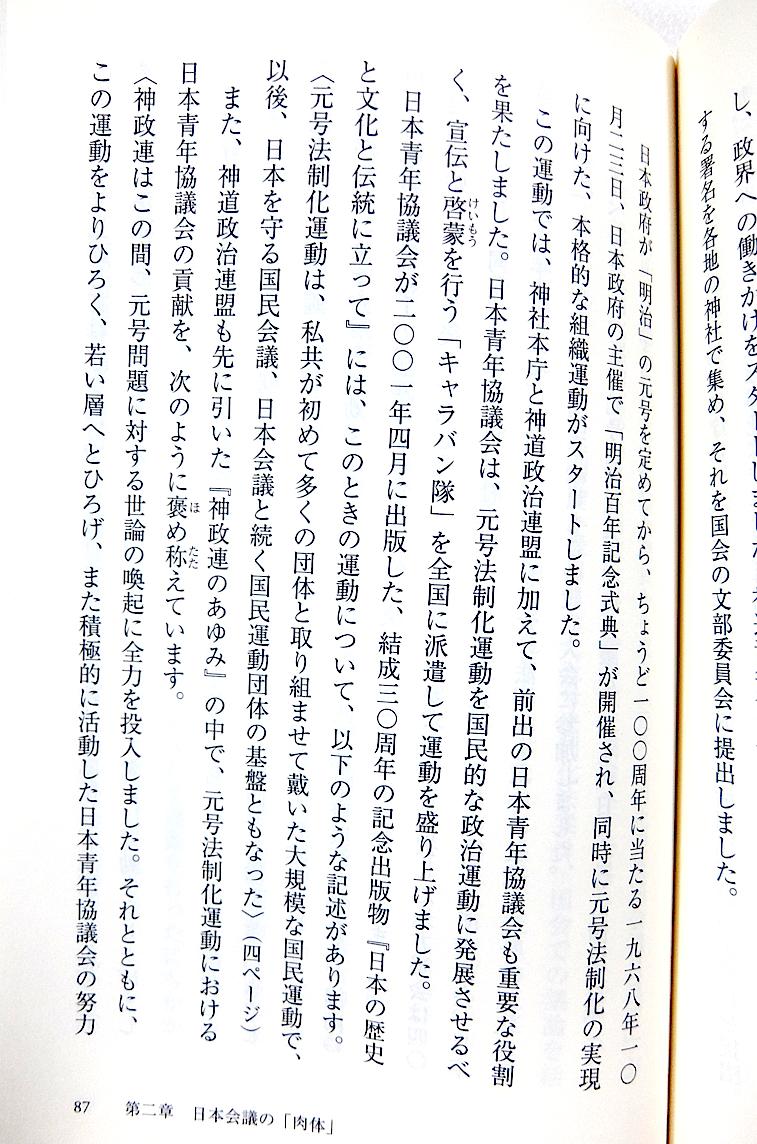 し、政界への働きかけをスタートしました。
する署名を各地の神社で集め、それを国会の文部委員会に提出しました。
日本政府が「明治」の元号を定めてから、ちょうど一〇〇周年に当たる一九六八年一〇
月二三日、日本政府の主催で「明治百年記念式典」が開催され、同時に元号法制化の実現
に向けた、本格的な組織運動がスタートしました。
この運動では、神社本庁と神道政治連盟に加えて、前出の日本青年協議会も重要な役割
を果たしました。日本青年協議会は、元号法制化運動を国民的な政治運動に発展させるべ
く、宣伝と啓蒙を行う「キャラバン隊」を全国に派遣して運動を盛り上げました。
日本青年協議会が二〇〇一年四月に出版した、結成三〇周年の記念出版物『日本の歴史
と文化と伝統に立って』には、このときの運動について、以下のような記述があります。
〈元号法制化運動は、私共が初めて多くの団体と取り組ませて戴いた大規模な国民運動で、
以後、日本を守る国民会議、日本会議と続く国民運動団体の基盤ともなった〉（四ページ）
また、神道政治連盟も先に引いた『神政連のあゆみ』の中で、元号法制化運動における
日本青年協議会の貢献を、次のように褒め称えています。
〈神政連はこの間、元号問題に対する世論の喚起に全力を投入しました。それとともに、
この運動をよりひろく、若い層へとひろげ、また積極的に活動した日本青年協議会の努力
87 第二章 日本会議の「肉体」